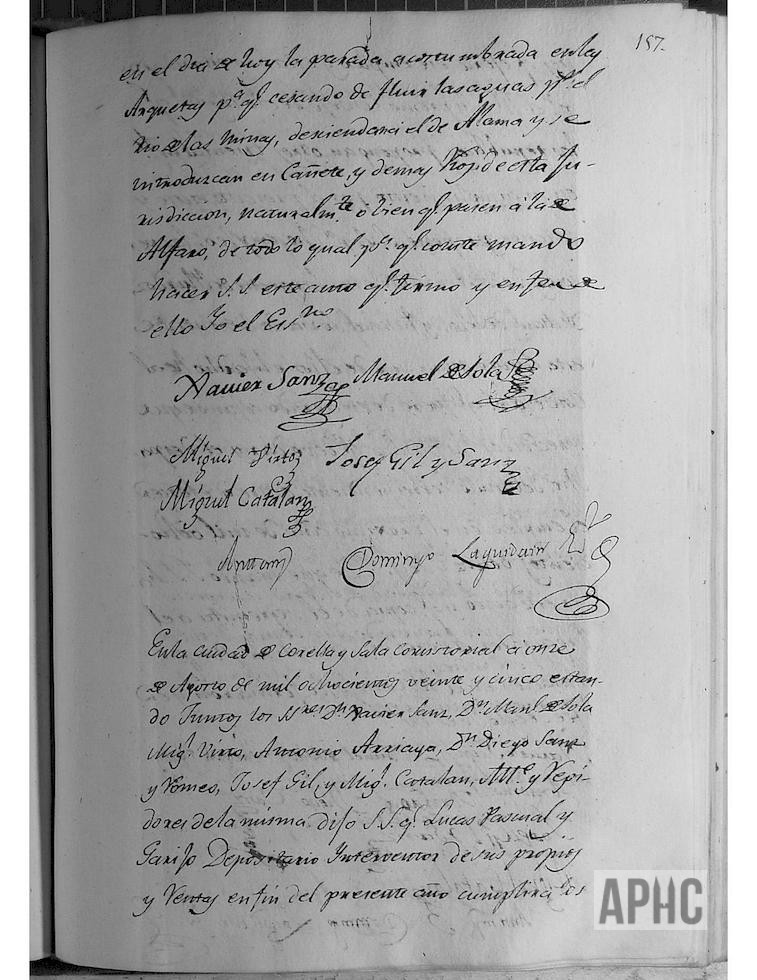 157.
en el dia de hoy la parada acostumbrada en las
Arquetas p.a q.e cesando de fluir las aguas p.r el
rio de las minas, desciendan a el de Alama y se
introduzcan en Cañete, y demas Rios de esta Ju-
risdiccion, naturalm.te ó bien q.e pasen á la de
Alfaro, de todo lo qual p.a q.e conste mando
hacer S.S. este auto q.e firmo y en fee de
ello Yo el Ess.no
Xavier Sanz Manuel de Sola
Miguel Virto Josef Gil y Sanz
Miguel Catalan
Antonio Domingo Laquidain
En la ciudad de Corella y Sala Consistorial á onze
de Agosto de mil ochocientos veinte y cinco estan-
do Juntos los SS.res D.n Xavier Sanz, D.n Man.l de Sola
Mig.l Virto, Antonio Arriaga, D.n Diego Sanz
y Yomes, Josef Gil, y Mig.l Catalan, Att.e y Rexi-
dores de la misma dijo S.S. q.e Lucas Pascual y
Garijo Depositario Interventor de sus propios
y Rentas en fin del presente año cumplira los
APHC